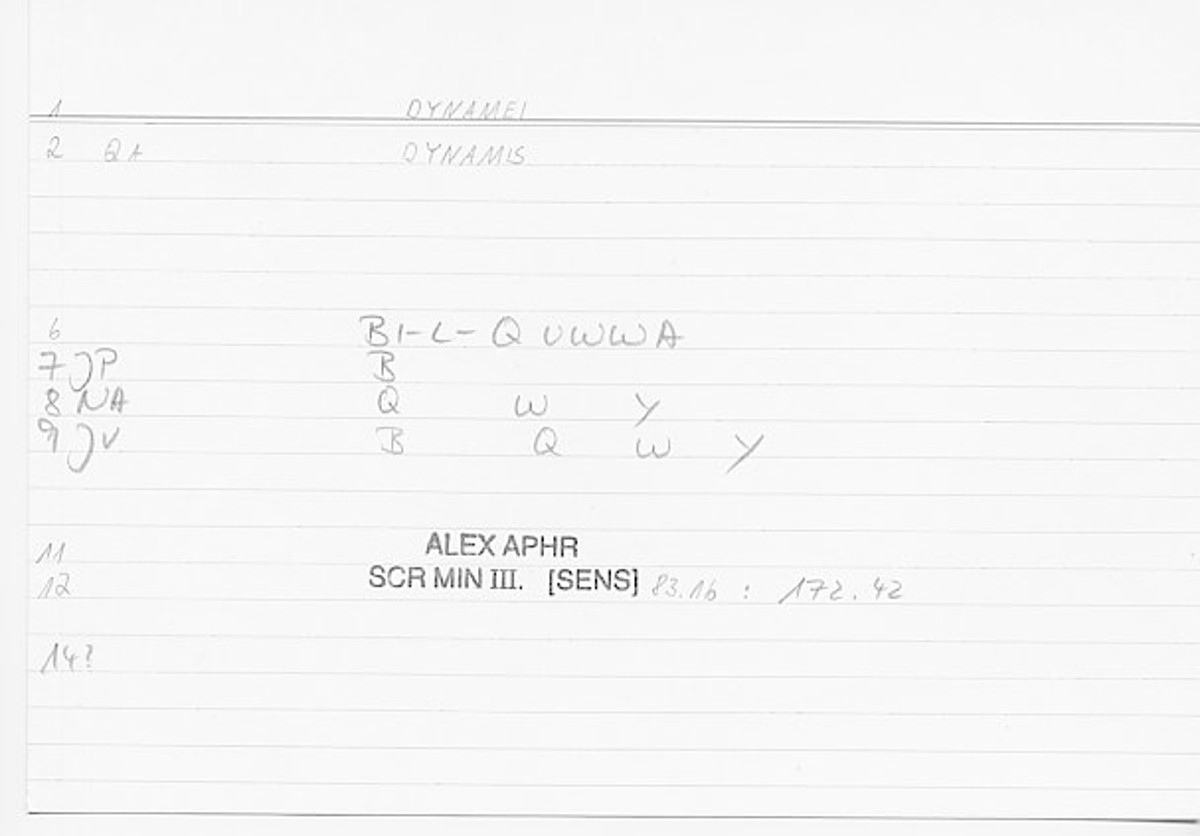 1 DYNAMEI
2 QA DYNAMIS
6 BI-L-QUWWA
7 JP B
8 NA Q W Y
9 JV B Q W Y
11 ALEX APHR
12 SCR MIN III. [SENS] 83.16 : 172.42
14?